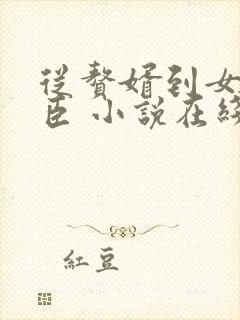 從贅婿到女
臣 小說在綫
紅豆